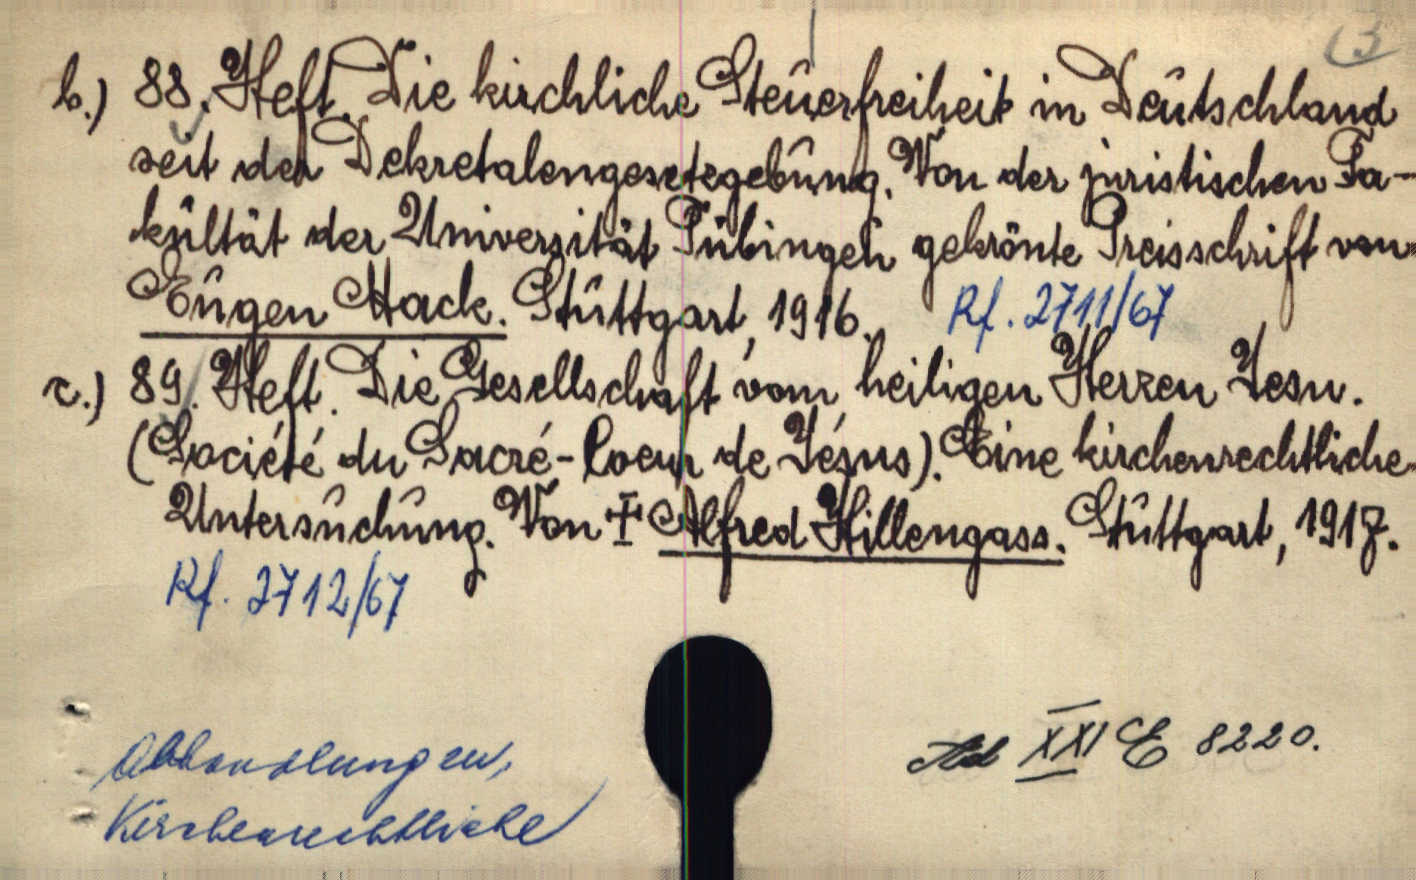 (3
b.) 88. Heft. Die kirchliche Steuerfreiheit in Deutschland
seit der Dekretalengesetzgebung. Von der juristischen Fa-
kultät der Universität Tübingen gekrönte Preisschrift von
Eugen Mack. Stuttgart, 1916. Rf. 2711/67
c.) 89. Heft. Die Gesellschaft vom heiligen Herzen Jesu.
(Société du Sacré-Coeur de Jésus). Eine kirchenrechtliche
Untersuchung. Von ‡ Alfred Hillengass. Stuttgart, 1917.
Rf. 2712/67
Abhandlungen,
Kirchenrechtliche
Ad XXI E 8220.